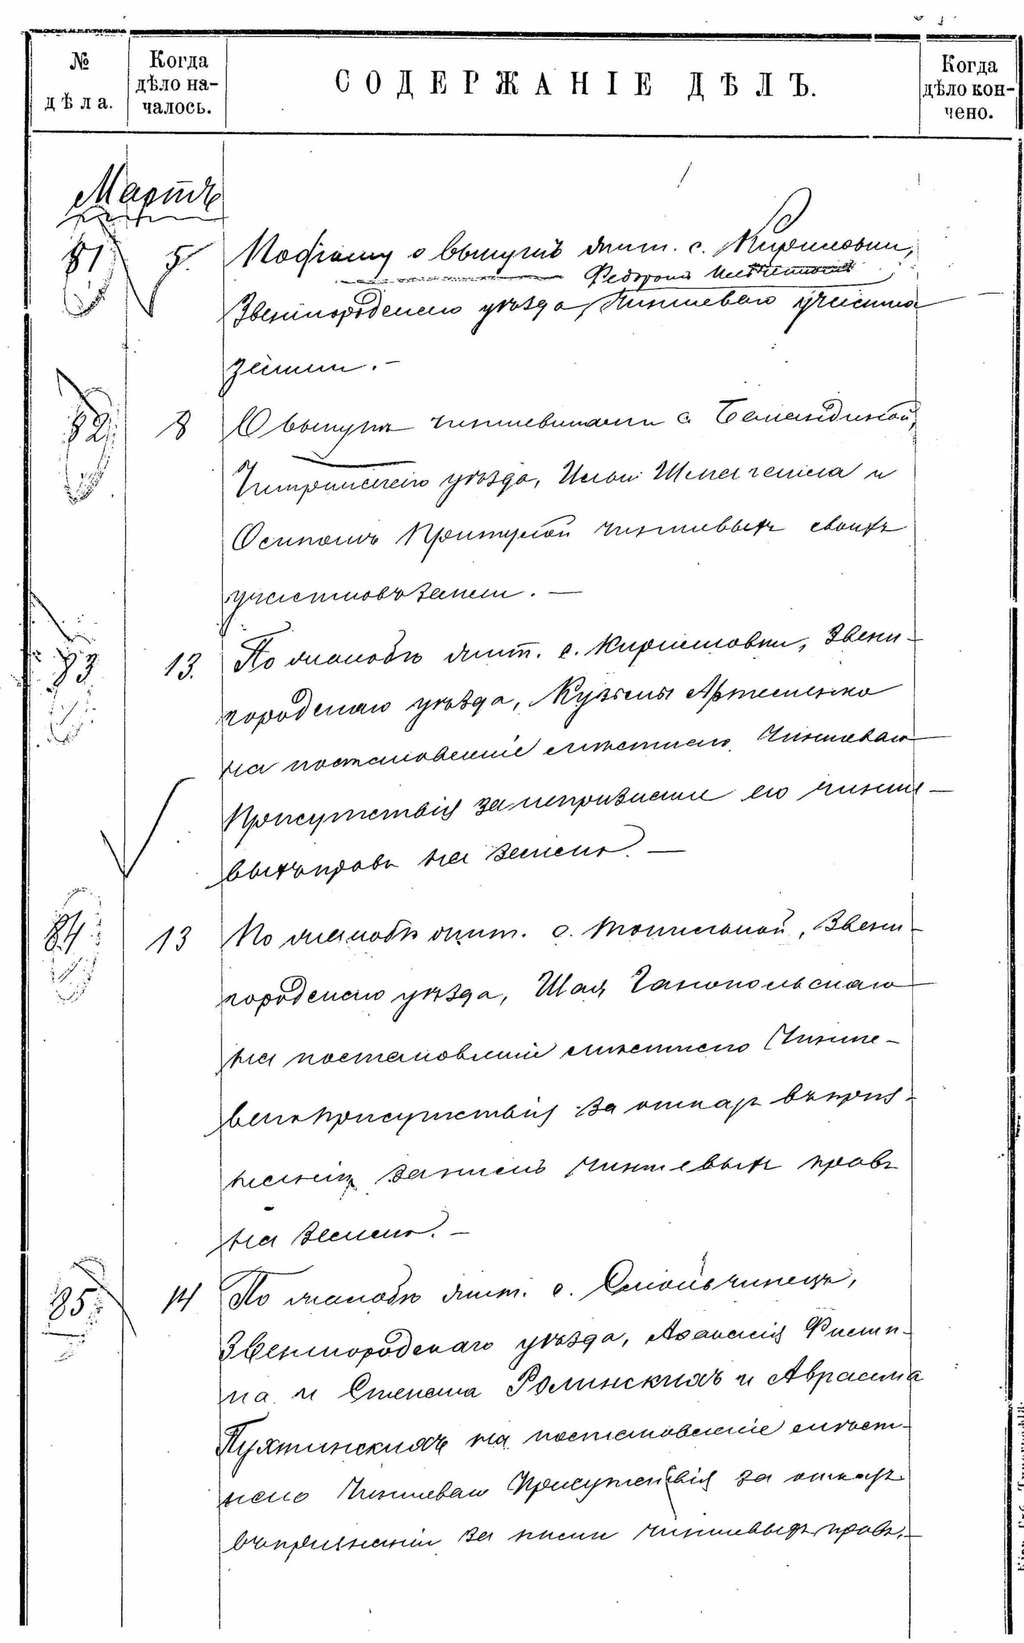 № дѣла.
Когда дѣло началось.
СОДЕРЖАНІЕ ДѢЛЪ.
Когда дѣло кончено.
Мартъ
81 5. о выкупѣ жит. с. Кириловки,
Федором
Звенигородскаго уѣзда, Чиншеваго участка
земли. —
82 8 О выкупѣ чиншевиками с. Баландиной,
Чигиринскаго уѣзда, и
Осипомъ Притулой чиншевыхъ своихъ
участковъ земли. —
83 13. По жалобѣ жит. с. Кириловки, Звени-
городскаго уѣзда, Кузьмы Артеменко
на постановленіе мѣстнаго Чиншеваго
Присутствія за непризнаніе его чинше-
выхъ правъ на землю. —
84 13 По жалобѣ жит. с. Топильной, Звени-
городскаго уѣзда, Шая Ганопольскаго
на постановленіе мѣстнаго Чинше-
ваго Присутствія за отказъ въ приз-
наніи за нимъ чиншевыхъ правъ
на землю. —
85 14 По жалобѣ жит. с. Смольчинецъ,
Звенигородскаго уѣзда, Афанасія Филип-
па и Степана Ролинскихъ и Авраама
Пухтинскихъ на постановленіе мѣст-
наго Чиншеваго Присутствія за отказъ
въ признаніи за ними чиншевыхъ правъ. —